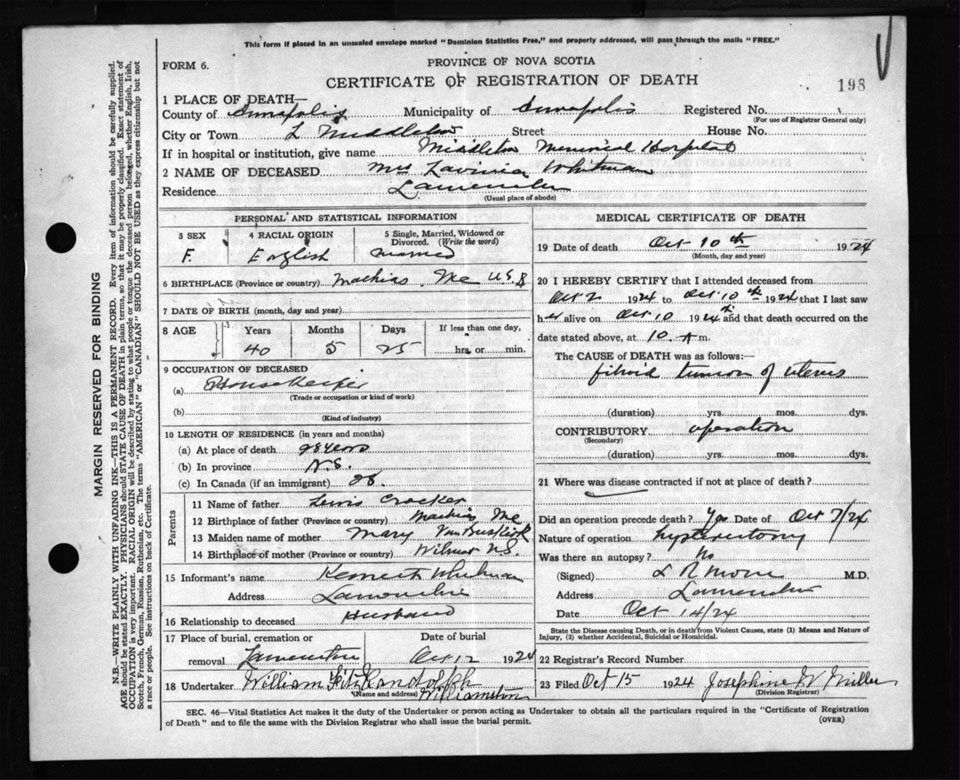 This form if placed in an unsealed envelope marked "Dominion Statistics Free," and properly addressed, will pass through the mails "FREE."
FORM 6.
PROVINCE OF NOVA SCOTIA
CERTIFICATE OF REGISTRATION OF DEATH
198
1 PLACE OF DEATH—
County of Annapolis Municipality of Annapolis Registered No.
(For use of Registrar General only)
City or Town Middleton Street House No.
If in hospital or institution, give name Middleton Memorial Hospital
2 NAME OF DECEASED Mrs Lavinia Whitman
Residence
(Usual place of abode)
PERSONAL AND STATISTICAL INFORMATION
3 SEX 4 RACIAL ORIGIN 5 Single, Married, Widowed or Divorced. (Write the word)
F. English Married
6 BIRTHPLACE (Province or country) Machias. Me U.S.A
7 DATE OF BIRTH (month, day and year)
8 AGE Years Months Days If less than one day,
40 5 25 hrs. or min.
9 OCCUPATION OF DECEASED
(a) Housekeeper
(Trade or occupation or kind of work)
(b)
(Kind of industry)
10 LENGTH OF RESIDENCE (in years and months)
(a) At place of death 28 years
(b) In province N.S.
(c) In Canada (if an immigrant) 28.
Parents
11 Name of father Lewis Crocker
12 Birthplace of father (Province or country) Machias Me
13 Maiden name of mother Mary VanBuskirk
14 Birthplace of mother (Province or country) Wilmot N.S.
15 Informant's name Kenneth Whitman
Address
16 Relationship to deceased Husband
17 Place of burial, cremation or removal Date of burial
Oct 12 1924
18 Undertaker William FitzRandolph
(Name and address) Williamston
MEDICAL CERTIFICATE OF DEATH
19 Date of death Oct 10th 1924
(Month, day and year)
20 I HEREBY CERTIFY that I attended deceased from
Oct 2 1924 to Oct 10th 1924 that I last saw
her alive on Oct 10 1924 and that death occurred on the
date stated above, at 10. A m.
The CAUSE OF DEATH was as follows:—
fibroid tumor of uterus
(duration) yrs. mos. dys.
CONTRIBUTORY operation
(Secondary)
(duration) yrs. mos. dys.
21 Where was disease contracted if not at place of death?
Did an operation precede death? Yes Date of Oct 7/24
Nature of operation hysterectomy
Was there an autopsy? No
(Signed) L R Morse M.D.
Address
Date Oct 14/24
State the Disease causing Death, or in death from Violent Causes, state (1) Means and Nature of
Injury, (2) whether Accidental, Suicidal or Homicidal.
22 Registrar's Record Number
23 Filed Oct 15 1924 Josephine W Miller
(Division Registrar)
SEC. 46—Vital Statistics Act makes it the duty of the Undertaker or person acting as Undertaker to obtain all the particulars required in the "Certificate of Registration
of Death" and to file the same with the Division Registrar who shall issue the burial permit.
(OVER)
MARGIN RESERVED FOR BINDING
N.B.—WRITE PLAINLY WITH UNFADING INK—THIS IS A PERMANENT RECORD. Every item of information should be carefully supplied.
AGE should be stated EXACTLY. PHYSICIANS should STATE CAUSE OF DEATH in plain terms, so that it may be properly classified. Exact statement of
OCCUPATION is very important. RACIAL ORIGIN will be described by stating to what people or tongue the deceased person belonged, whether English, Irish,
Scotch, French, German, Russian, Ruthenian, etc. The terms "AMERICAN" or "CANADIAN" SHOULD NOT BE USED as they express citizenship but not
a race or people. See instructions on back of Certificate.